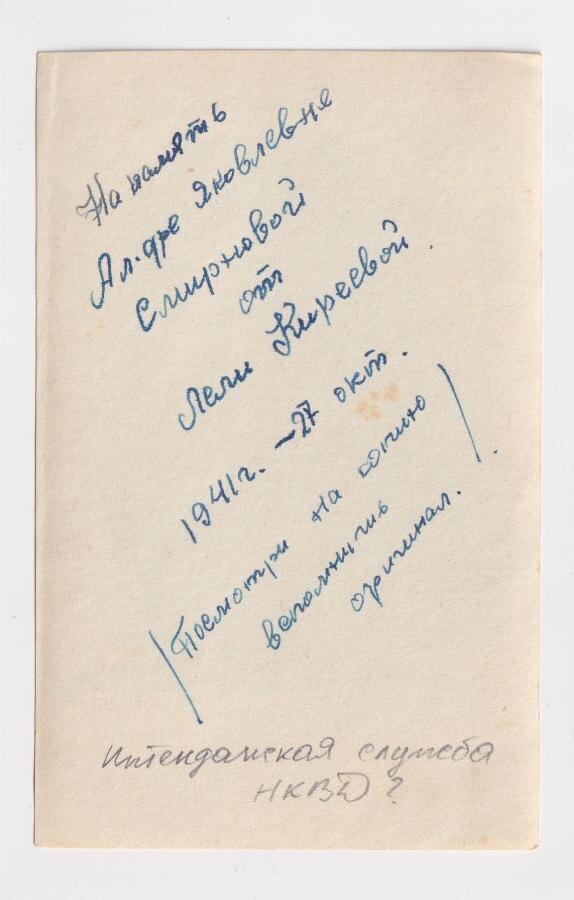 На память
Ал-дре Яковлевне
Смирновой
от
Лели Киреевой.
1941г. – 27 окт.
/Посмотри на копию
вспомнишь
оригинал./.
Интенданская служба
НКВД?